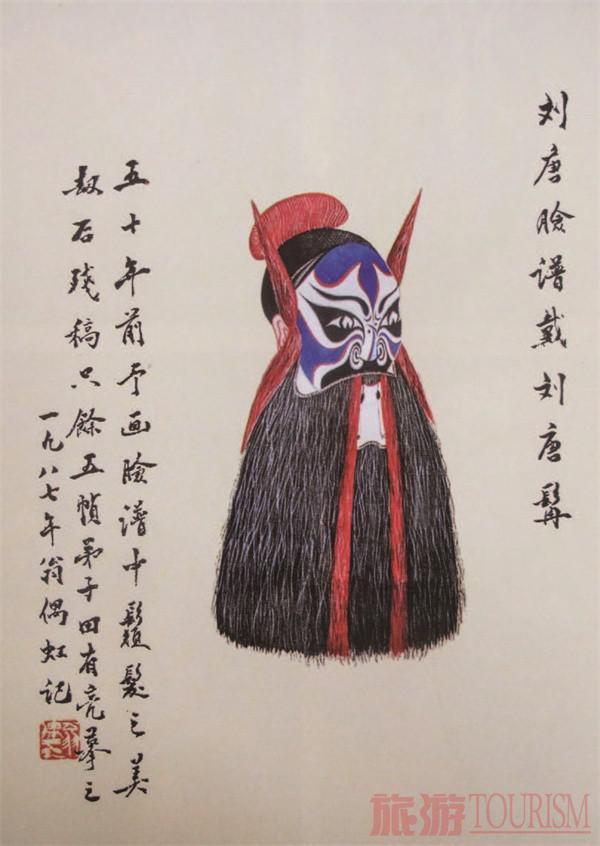 刘唐臉谱戴刘唐髯
五十年前予画臉谱中鬚髮之美
劫后残稿只餘五幀弟子田有亮摹之
一九八七年翁偶虹记
旅游TOURISM